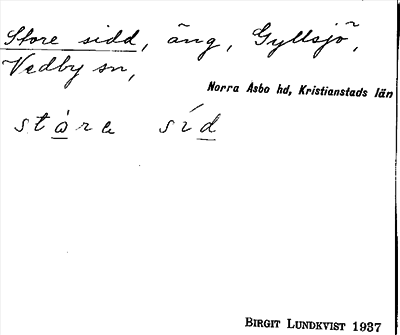 Store sidd, äng, Gyllsjö,
Vedby sn,
Norra Åsbo hd, Kristianstads län
stȧra síd
BIRGIT LUNDKVIST 1937